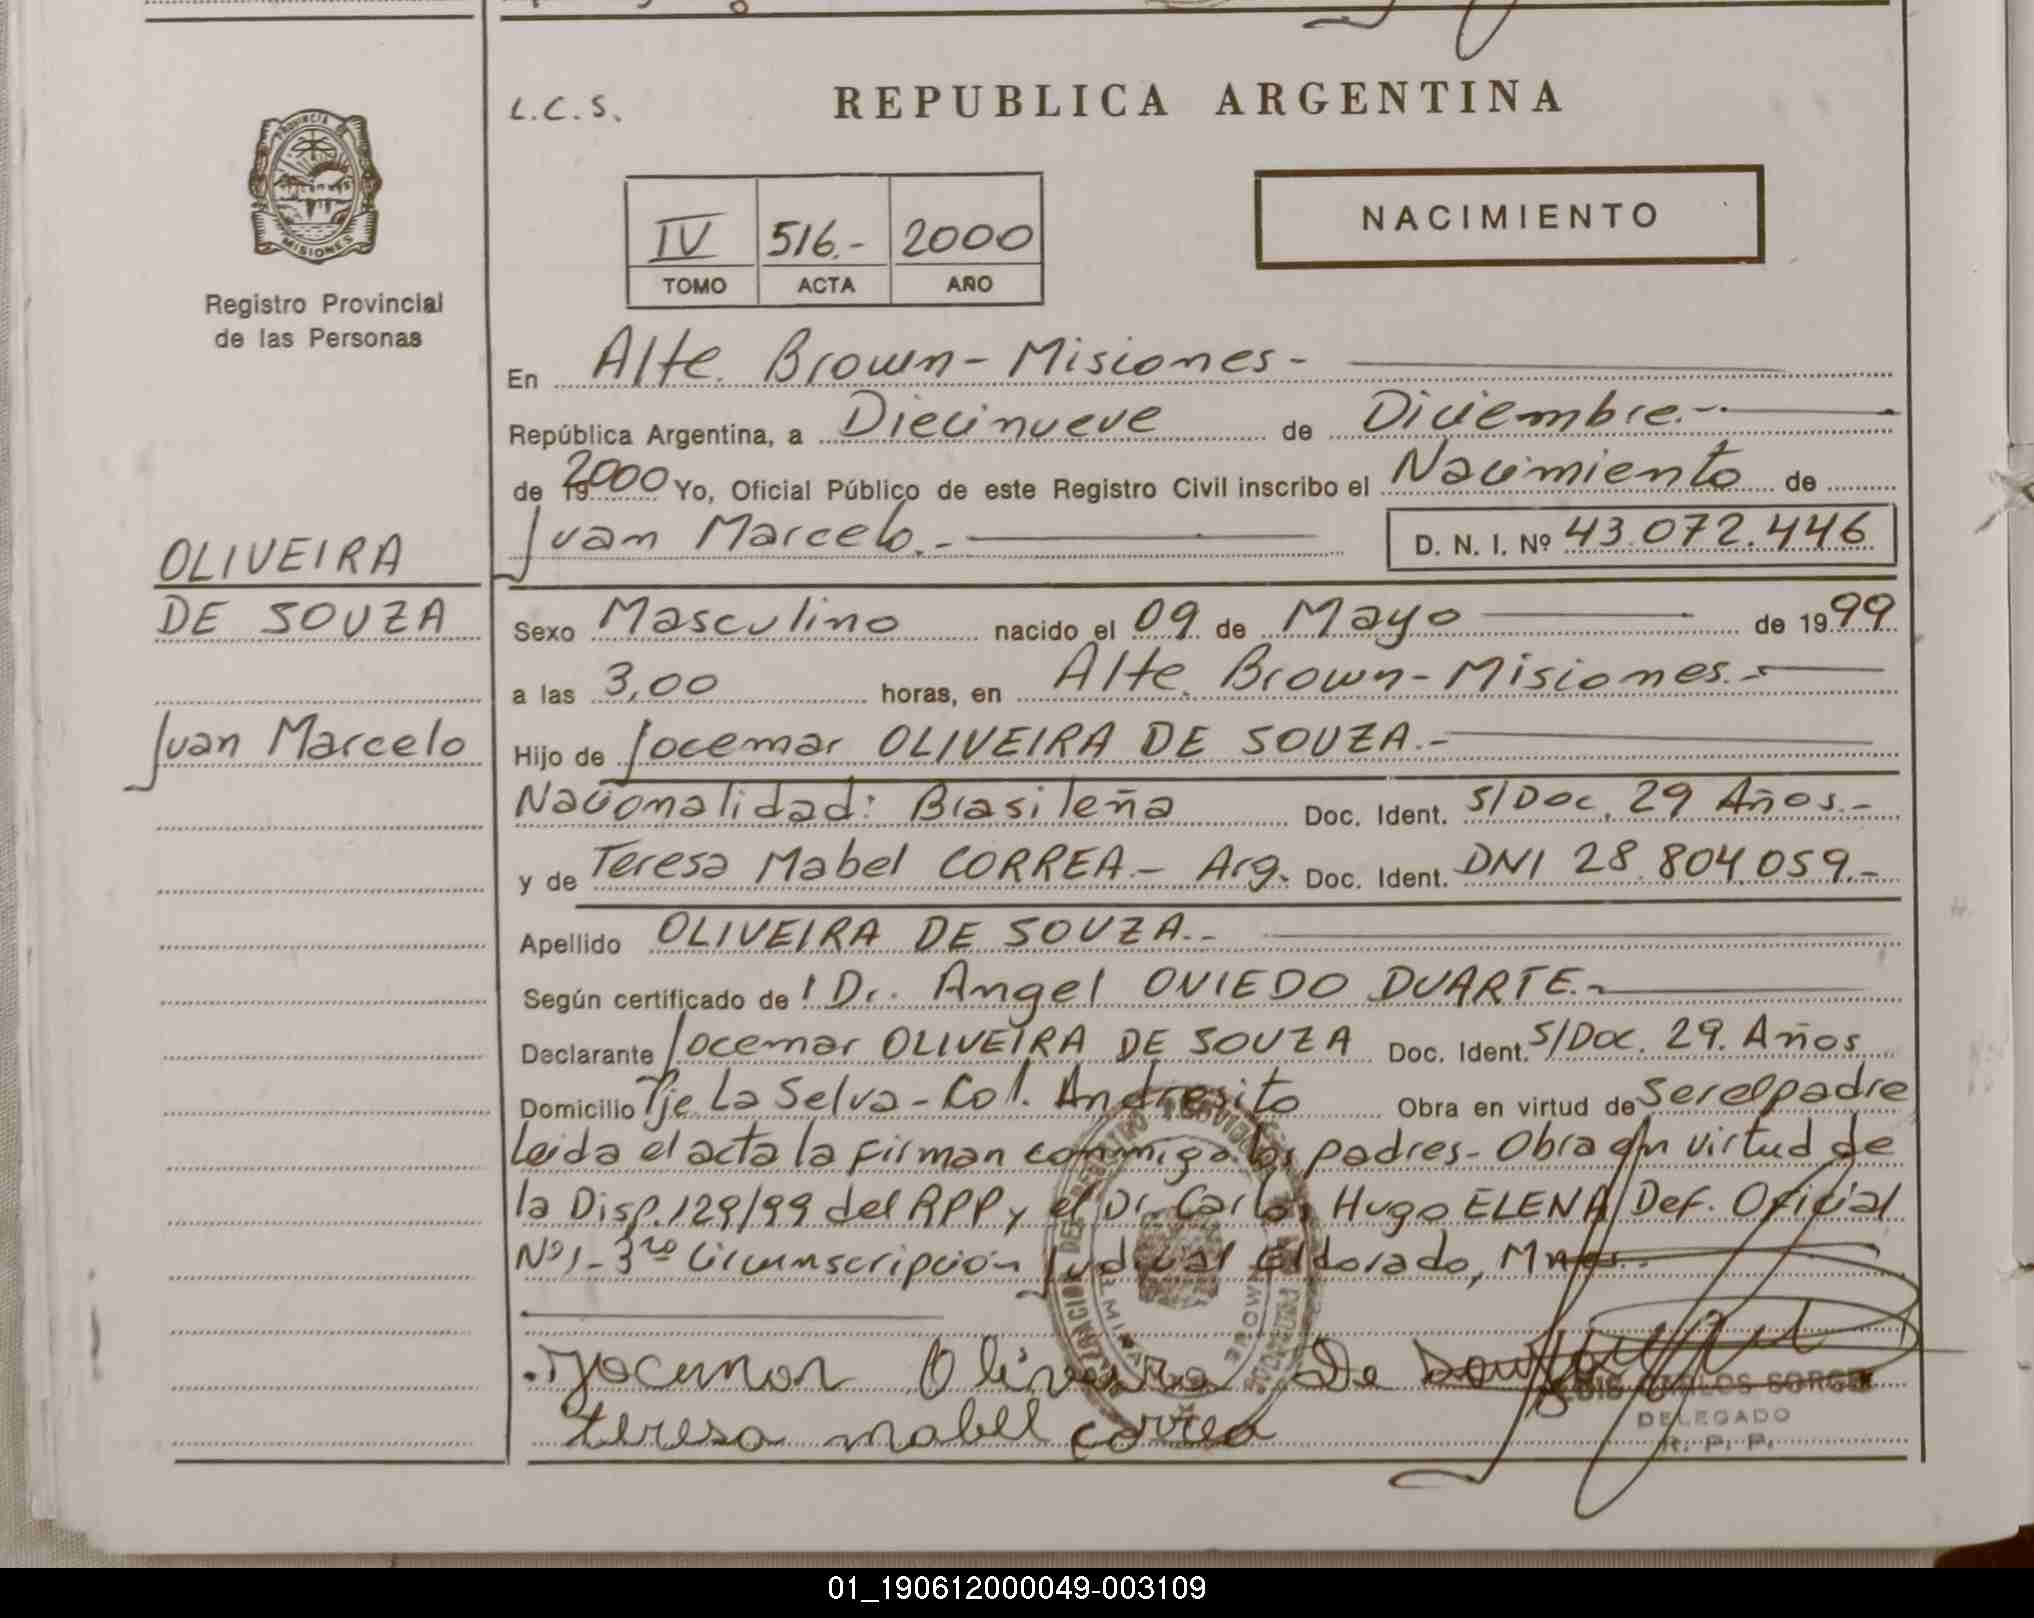 L.C.S.
REPUBLICA ARGENTINA
PROVINCIA DE
MISIONES
Registro Provincial
de las Personas
IV 516.- 2000
TOMO ACTA AÑO
NACIMIENTO
En Alte. Brown - Misiones -
República Argentina, a Diecinueve de Diciembre.-
de 19 2000 Yo, Oficial Público de este Registro Civil inscribo el Nacimiento de
Juan Marcelo.- D. N. I. Nº 43.072.446
OLIVEIRA
DE SOUZA
Juan Marcelo
Sexo Masculino nacido el 09 de Mayo de 1999
a las 3,00 horas, en Alte. Brown - Misiones.-
Hijo de Jocemar OLIVEIRA DE SOUZA.-
Nacionalidad: Brasileña Doc. Ident. S/Doc, 29 Años.-
y de Teresa Mabel CORREA.- Arg. Doc. Ident. DNI 28.804.059.-
Apellido OLIVEIRA DE SOUZA.-
Según certificado de l Dr. Angel OVIEDO DUARTE.-
Declarante Jocemar OLIVEIRA DE SOUZA Doc. Ident. S/Doc. 29. Años
Domicilio Pje La Selva - Col. Andresito Obra en virtud de Ser el padre
Leida el acta la firman conmigo los padres - Obra en virtud de
la Disp. 129/99 del RPP y el Dr. Carlos Hugo ELENA Def. Oficial
Nº 1 - 3ra Circunscripción Judicial Eldorado, Mnes.-
Jocemar Oliveira De Souza
teresa mabel correa
LUIS CARLOS
DELEGADO
R. P. P.
01_190612000049-003109